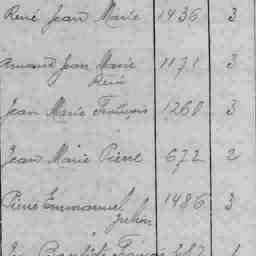 René Jean Marie 1436 3
Armand Jean Marie 1171 3
René
Jean Marie François 1268 3
Jean Marie Pierre 672 2
Pierre Emmanuel 1486 3
Julien
Baptiste François 1